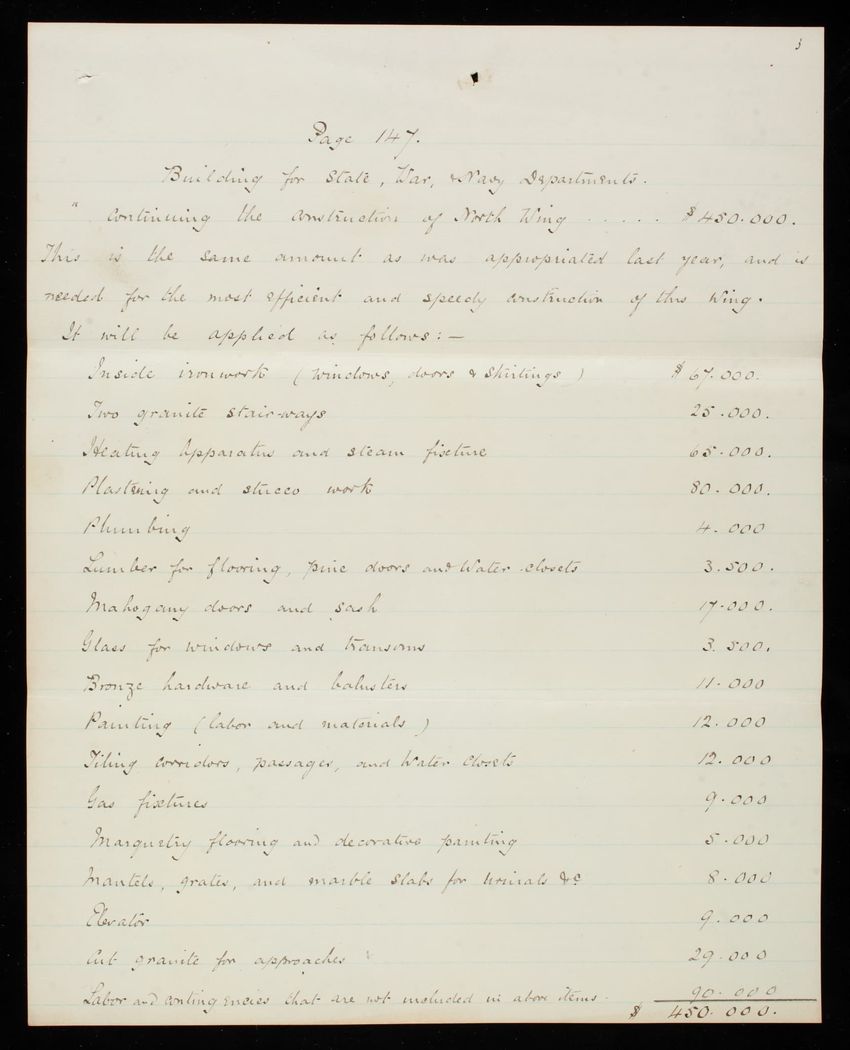 3
Page 147.
Building for State, War, & Navy Departments.
" Continuing the construction of North Wing ..... $450.000.
This is the same amount as was appropriated last year, and is
needed for the most efficient and speedy construction of this Wing.
It will be applied as follows:—
Inside ironwork (windows, doors & skirtings) $67.000.
Two granite stair-ways 25.000.
Heating Apparatus and steam fixture 65.000.
Plastering and stucco work 80.000.
Plumbing 4.000
Lumber for flooring, pine doors and Water-closets 3.500.
Mahogany doors and sash 17.000.
Glass for windows and transoms 3.500.
Bronze hardware and balusters 11.000
Painting (labor and materials) 12.000
Tiling corridors, passages, and Water closets 12.000
Gas fixtures 9.000
Marquetry flooring and decorative painting 5.000
Mantels, grates, and marble slabs for urinals &c 8.000
Elevator 9.000
Cut granite for approaches 29.000
Labor and contingencies that are not included in above items. 90.000
$ 450.000.